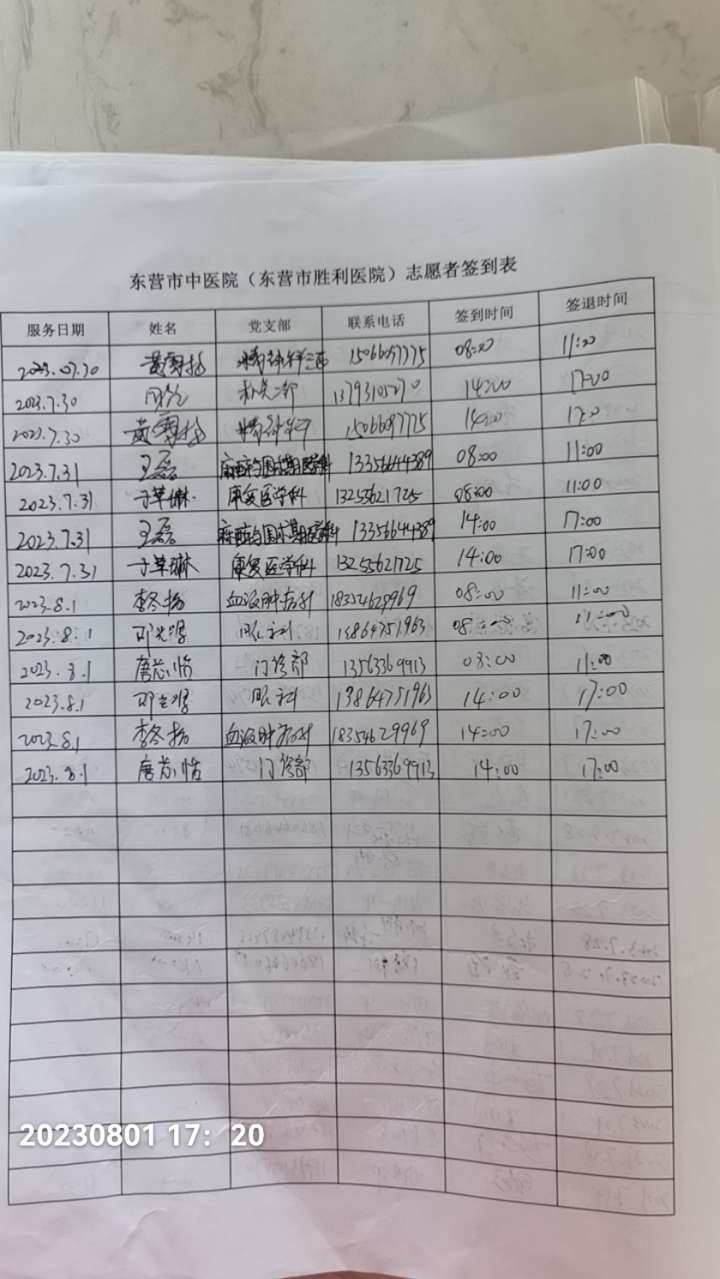 东营市中医院（东营市胜利医院）志愿者签到表
服务日期 姓名 党支部 联系电话 签到时间 签退时间
2023.07.30 黄雪梅 精神科三 15066097775 08:00 11:00
2023.7.30 机关二部 14:00 17:00
2023.7.30 黄雪梅 精神科 15066097725 14:00 17:00
2023.7.31 王磊 麻醉与围术期医学科 13356644389 08:00 11:00
2023.7.31 于草琳 康复医学科 13255621725 08:00 11:00
2023.7.31 王磊 麻醉与围术期医学科 13356644389 14:00 17:00
2023.7.31 于草琳 康复医学科 13255621725 14:00 17:00
2023.8.1 李冬梅 血液肿瘤科 18354629969 08:00 11:00
2023.8.1 眼科 13864751963 08:00 11:00
2023.8.1 唐芯怡 门诊部 13563369913 08:00 11:00
2023.8.1 眼科 13864751963 14:00 17:00
2023.8.1 李冬梅 血液肿瘤科 18354629969 14:00 17:00
2023.8.1 唐芯怡 门诊部 13563369913 14:00 17:00
20230801 17：20